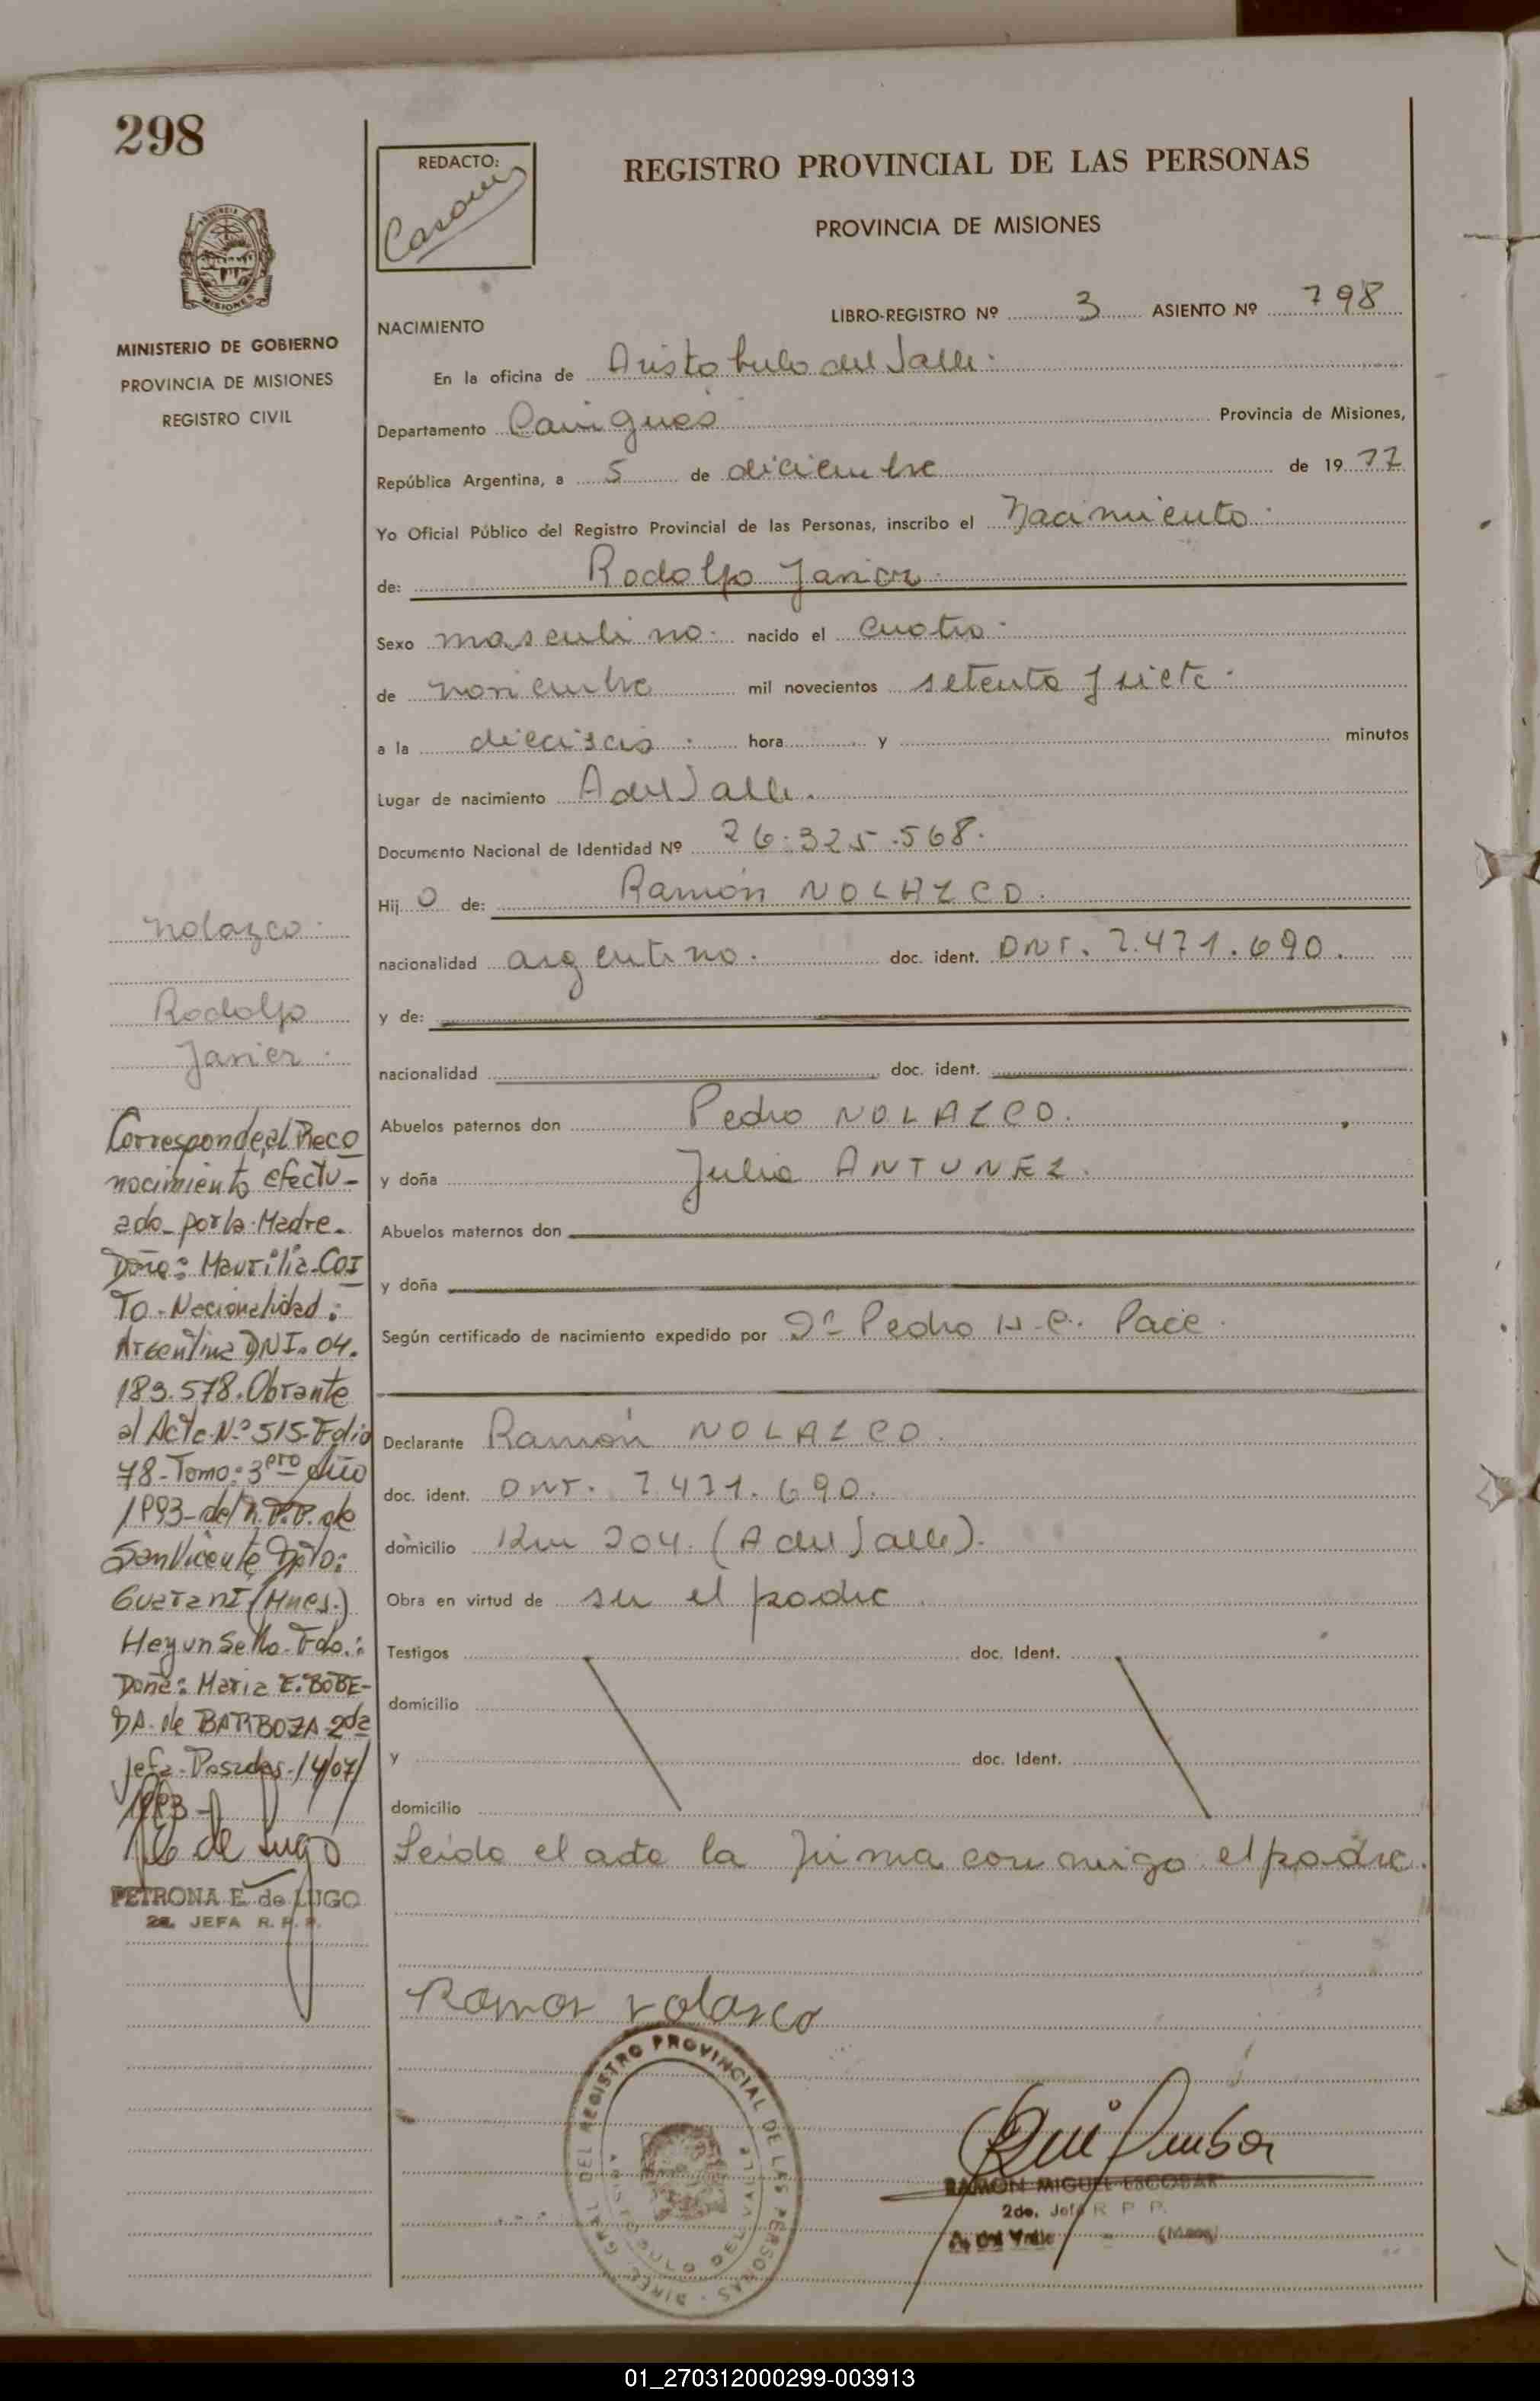 298
REDACTO:
REGISTRO PROVINCIAL DE LAS PERSONAS
PROVINCIA DE MISIONES
MINISTERIO DE GOBIERNO
PROVINCIA DE MISIONES
REGISTRO CIVIL
LIBRO-REGISTRO Nº 3 ASIENTO Nº 798
NACIMIENTO
En la oficina de Aristobulo del Valle.
Departamento Cainguas Provincia de Misiones,
República Argentina, a 5 de diciembre de 1977
Yo Oficial Público del Registro Provincial de las Personas, inscribo el Nacimiento
de: Rodolfo Javier
Sexo masculino. nacido el cuatro
de noviembre mil novecientos setenta y siete
a la dieciseis hora y minutos
Lugar de nacimiento A del Valle.
Documento Nacional de Identidad Nº 26.325.568.
Hij o de: Ramón NOLAZCO.
nacionalidad argentino. doc. ident. DNI. 7.471.690.
y de:
nacionalidad doc. ident.
Abuelos paternos don Pedro NOLAZCO.
y doña Julia ANTUNEZ.
Abuelos maternos don
y doña
Según certificado de nacimiento expedido por Dr Pedro H. C. Pace
Declarante Ramón NOLAZCO.
doc. ident. DNI. 7.471.690.
domicilio Km 204. (A del Valle).
Obra en virtud de ser el padre
Testigos doc. Ident.
domicilio
y doc. Ident.
domicilio
Leida el acta la firma conmigo el padre.
Ramon Nolazco
DIREC. GRAL. DEL REGISTRO PROVINCIAL DE LAS PERSONAS
ARISTOBULO DEL VALLE
RAMON MIGUEL ESCOBAR
2do. Jefe R P P.
A. del Valle - (Mnes)
Nolazco
Rodolfo
Javier
Corresponde al Reco
nocimiento efectu-
ado por la Madre.
Doña: Maurilia Coz
To - Nacionalidad:
Argentina DNI. 04.
183.578. Obrante
al Acta Nº 515-Folio
78-Tomo: 3ero Año
1993-del R.P.P. de
San Vicente Dpto:
Guarani (Mnes.)
Hay un Sello-Fdo.:
Doña: Maria E. BOBE-
DA. de BARBOZA 2da
Jefa-Posadas-14/07/
1993-
PETRONA E. de LUGO
2a. JEFA R. P. P.
01_270312000299-003913